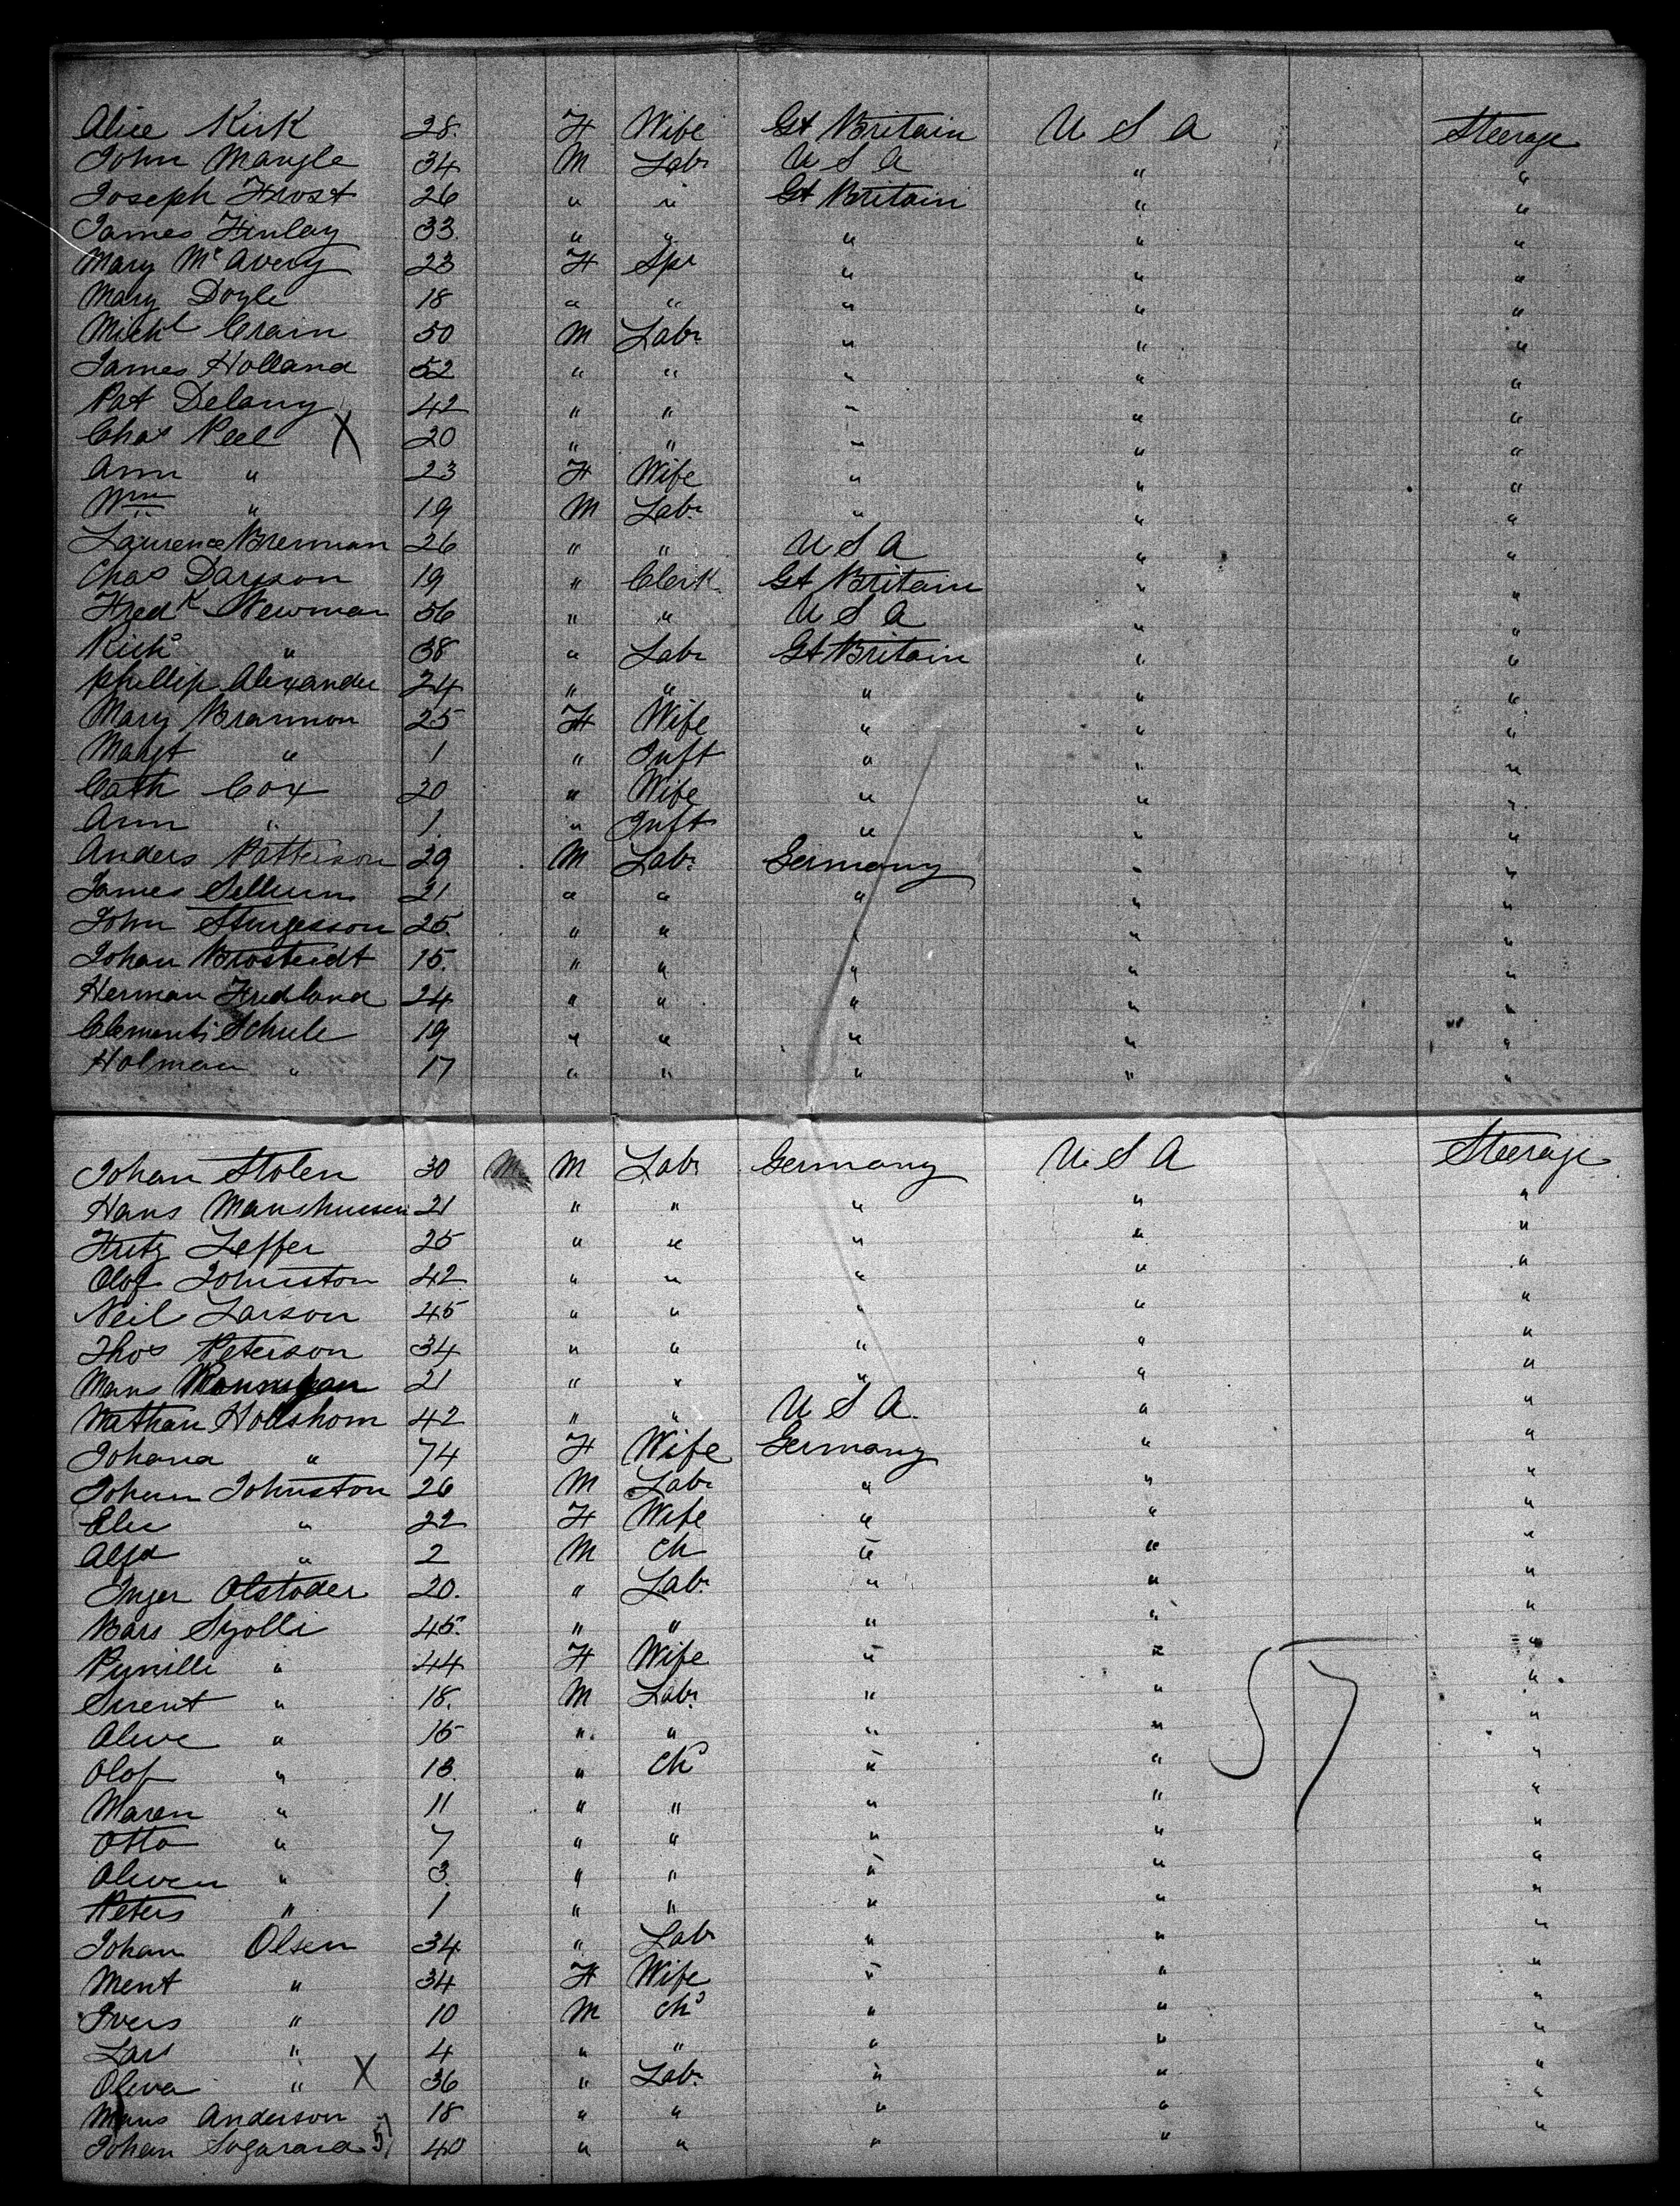 Alice Kirk 28. F Wife Gt Britain U S A Steerage
John Mangle 34 M Labr U S A " "
Joseph Frost 26 " " Gt Britain " "
James Finlay 33. " " " " "
Mary McAvery 23 F Spr " " "
Mary Doyle 18 " " " " "
Michl Crain 50 M Labr " " "
James Holland 52 " " " " "
Pat Delany 42 " " " " "
Chas Peel X 20 " " " " "
Ann " 23 F Wife " " "
Wm " 19 M Labr " " "
Laurence Brennan 26 " " U S A " "
Chas Darson 19 " Clerk Gt Britain " "
Fredk Newman 56 " " U S A " "
Richd " 38 " Labr Gt Britain " "
Phillip Alexander 24 " " " " "
Mary Brannon 25 F Wife " " "
Margt " 1 " Inft " " "
Cath Cox 20 " Wife " " "
Ann " 1 " Inft " " "
Anders Patterson 29 M Labr Germany " "
James Sellum 21 " " " " "
John Sturgesson 25. " " " " "
Johan Brosteidt 15. " " " " "
Herman Fredland 24 " " " " "
Clements Schule 19 " " " " "
Holman " 17 " " " " "
Johan Stolen 30 M M Labr Germany U. S A Steerage
Hans Manshussen 21 " " " " "
Fritz Leffer 25 " " " " "
Olof Johnston 42 " " " " "
Neil Larson 45 " " " " "
Thos Peterson 34 " " " " "
Mans 21 " " " " "
Nathan Hollshom 42 " " U S A. " "
Johana " 74 F Wife Germany " "
Johan Johnston 26 M Labr " " "
Elie " 22 F Wife " " "
Alfd " 2 M Ch " " "
Inger Olstoder 20. " Labr " " "
Bars Syolli 45. " " " " "
Pynille " 44 F Wife " " "
Sirent " 18. M Labr " " "
Alive " 15 " " " " "
Olof " 13. " Chd " " "
Maren " 11 " " " " "
Otto " 7 " " " " "
Oliven " 3. " " " " "
Peters " 1 " " " " "
57
Johan Olsen 34 " Labr " " "
Ment " 34 F Wife " " "
Ivers " 10 M Chd " " "
Lars " 4 " " " " "
Oliva " X 36 " Labr " " "
Mans Anderson 18 " " " " "
Johan Sogarara 57 40 " " " " "